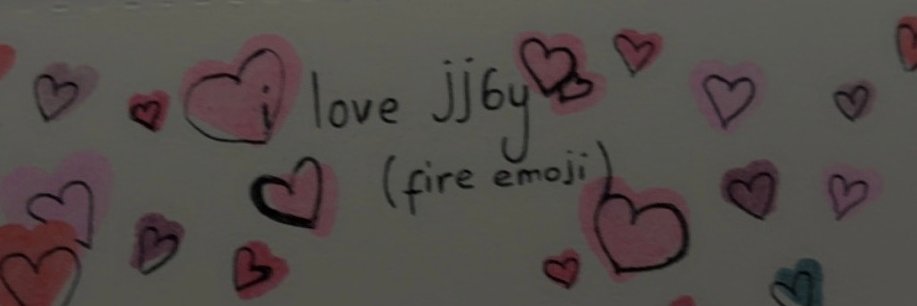 i love jj6y
(fire emoji)